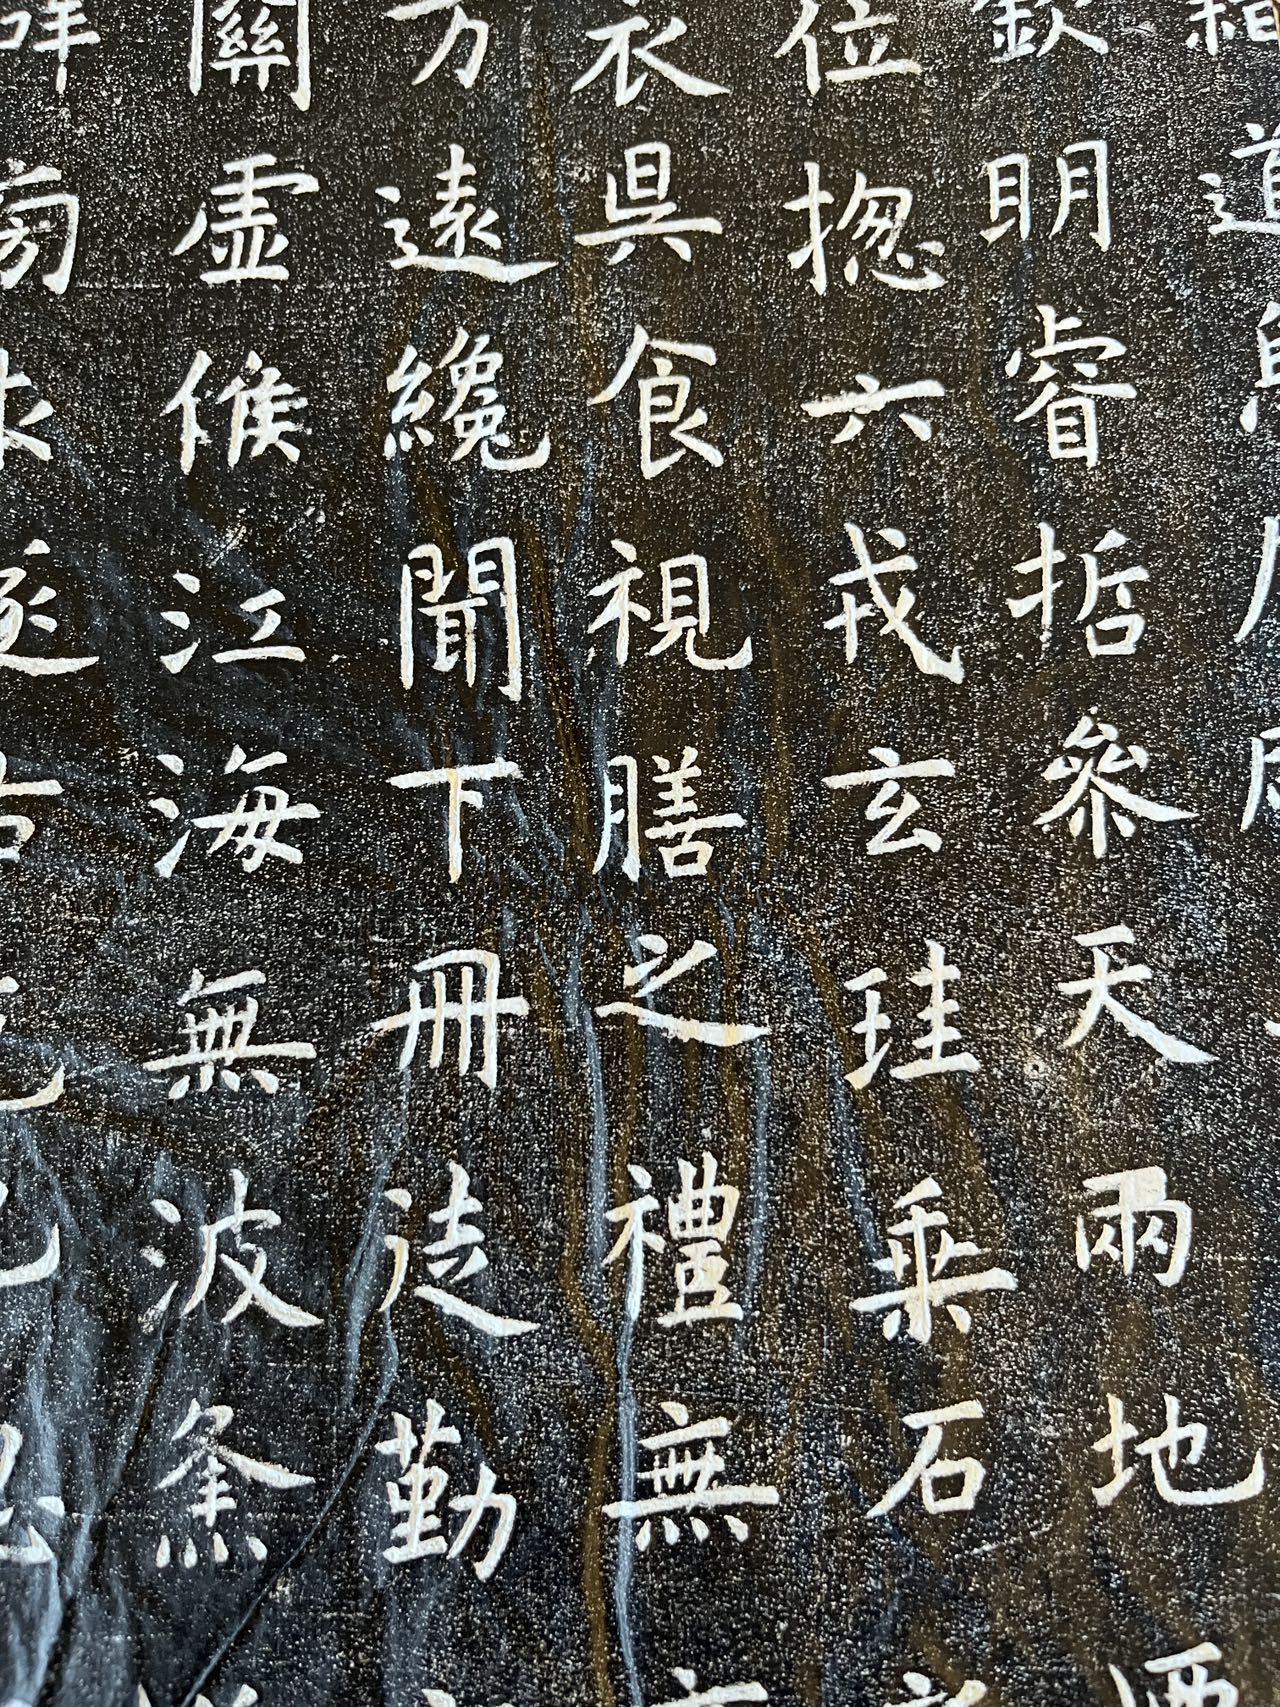 道
欽明睿哲參天兩地
位揔六戎玄珪乗石
衣具食視膳之禮無
方遠纔聞下冊徒勤
關虛候江海無波㷭